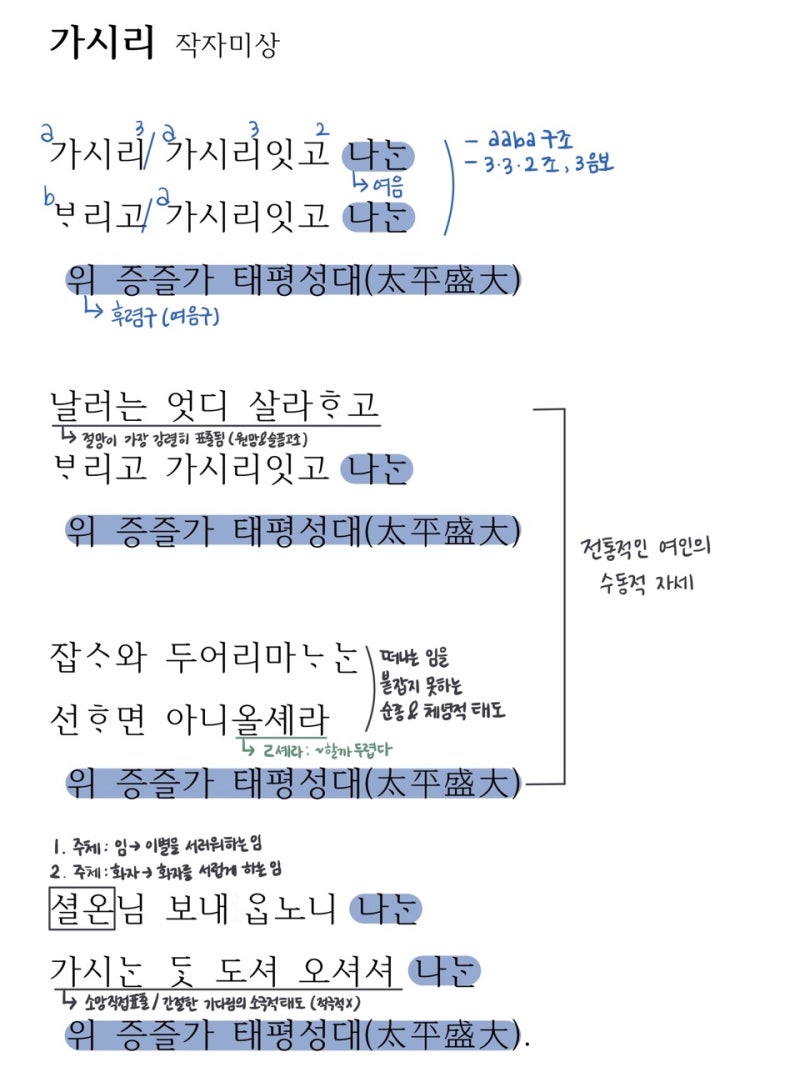 가시리 작자미상
a 3 a 3 2
가시리/ 가시리잇고 나ᄂᆞᆫ
- aaba 구조
- 3·3·2 조, 3음보
↳ 여음
b a
ᄇᆞ리고/ 가시리잇고 나ᄂᆞᆫ
위 증즐가 태평성대(太平盛大)
↳ 후렴구 (여음구)
날러는 엇디 살라ᄒᆞ고
↳ 절망이 가장 강렬히 표출됨 (원망&슬픔고조)
ᄇᆞ리고 가시리잇고 나ᄂᆞᆫ
위 증즐가 태평성대(太平盛大)
전통적인 여인의
수동적 자세
잡ᄉᆞ와 두어리마ᄂᆞᄂᆞᆫ
떠나는 임을
붙잡지 못하는
순종 & 체념적 태도
선ᄒᆞ면 아니올셰라
↳ ㄹ셰라: ~할까 두렵다
위 증즐가 태평성대(太平盛大)
1. 주체: 임→ 이별을 서러워하는 임
2. 주체: 화자→ 화자를 서럽게 하는 임
셜온님 보내ᄋᆞᆸ노니 나ᄂᆞᆫ
가시ᄂᆞᆫ ᄃᆞᆺ 도셔 오셔셔 나ᄂᆞᆫ
↳ 소망직접표출 / 간절한 기다림의 소극적태도 (적극적X)
위 증즐가 태평성대(太平盛大).